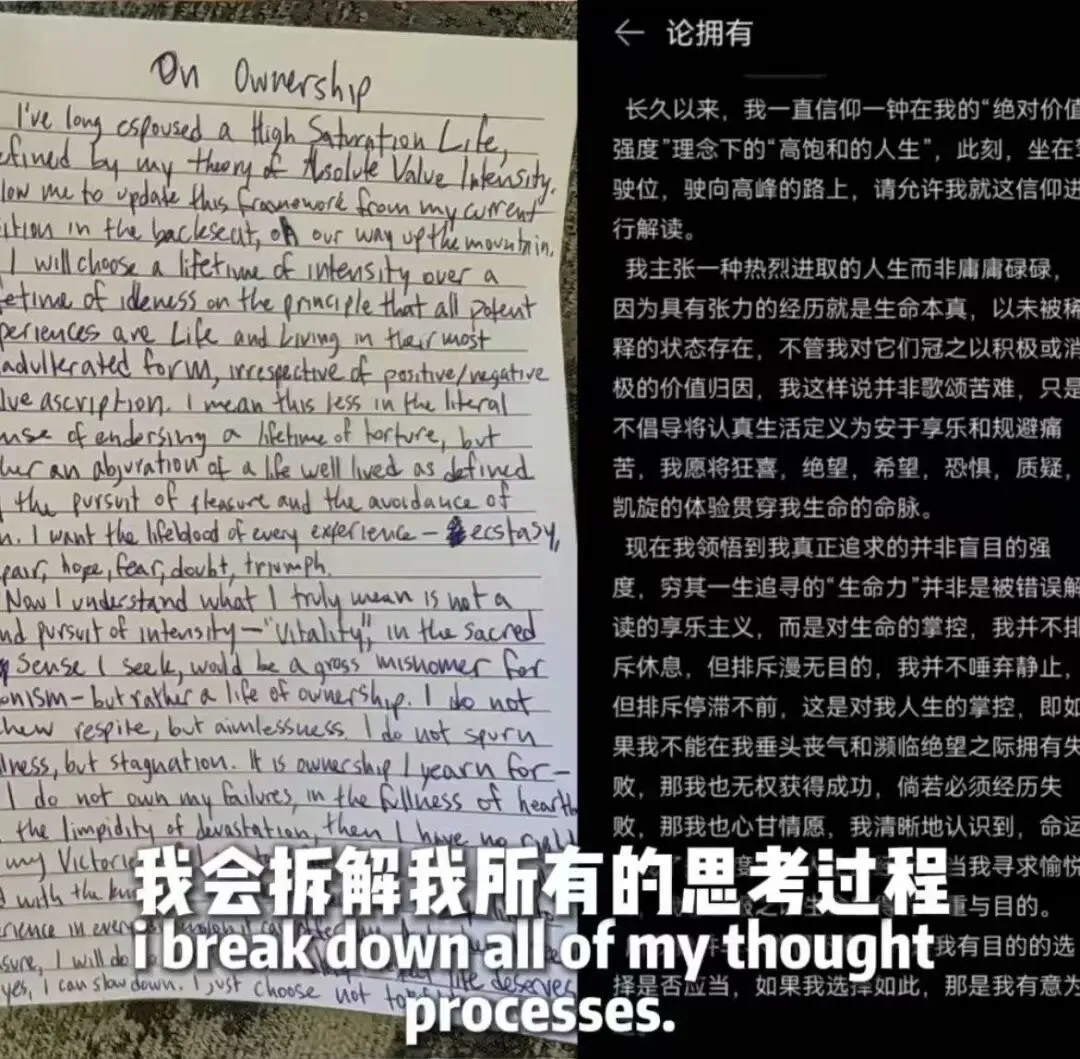 On Ownership
I've long espoused a High Saturation Life,
efined by my theory of Absolute Value Intensity.
low me to update this framework from my current
ition in the backseat, on our way up the mountain.
I will choose a lifetime of intensity over a
etime of ideness on the principle that all potent
periences are Life and Living in their most
adulterated form, irrespective of positive/negative
lue ascription. I mean this less in the literal
nse of endorsing a lifetime of torture, but
her an abjuration of a life well lived as defined
the pursuit of pleasure and the avoidance of
n. I want the lifeblood of every experience - ecstasy,
pair, hope, fear, doubt, triumph.
Now I understand what I truly mean is not a
nd pursuit of intensity - "Vitality", in the sacred
Sense I seek, would be a gross misnomer for
onism - but rather a life of ownership. I do not
hew respite, but aimlessness. I do not spurn
llness, but stagnation. It is ownership I yearn for -
I do not own my failures, in the fullness of heartb
the limpidity of devastation, then I have no
my Victorie
d with the
erience in every
sure, I will do life deserves
yes, I can slow down. I just choose not to
← 论拥有
长久以来，我一直信仰一钟在我的“绝对价值
强度”理念下的“高饱和的人生”，此刻，坐在驾
驶位，驶向高峰的路上，请允许我就这信仰进
行解读。
我主张一种热烈进取的人生而非庸庸碌碌，
因为具有张力的经历就是生命本真，以未被稀
释的状态存在，不管我对它们冠之以积极或消
极的价值归因，我这样说并非歌颂苦难，只是
不倡导将认真生活定义为安于享乐和规避痛
苦，我愿将狂喜，绝望，希望，恐惧，质疑，
凯旋的体验贯穿我生命的命脉。
现在我领悟到我真正追求的并非盲目的强
度，穷其一生追寻的“生命力”并非是被错误解
读的享乐主义，而是对生命的掌控，我并不排
斥休息，但排斥漫无目的，我并不唾弃静止，
但排斥停滞不前，这是对我人生的掌控，即如
果我不能在我垂头丧气和濒临绝望之际拥有失
败，那我也无权获得成功，倘若必须经历失
败，那我也心甘情愿，我清晰地认识到，命运
当我寻求愉悦
重与目的。
我有目的的选
择是否应当，如果我选择如此，那是我有意为
我会拆解我所有的思考过程
i break down all of my thought
processes.